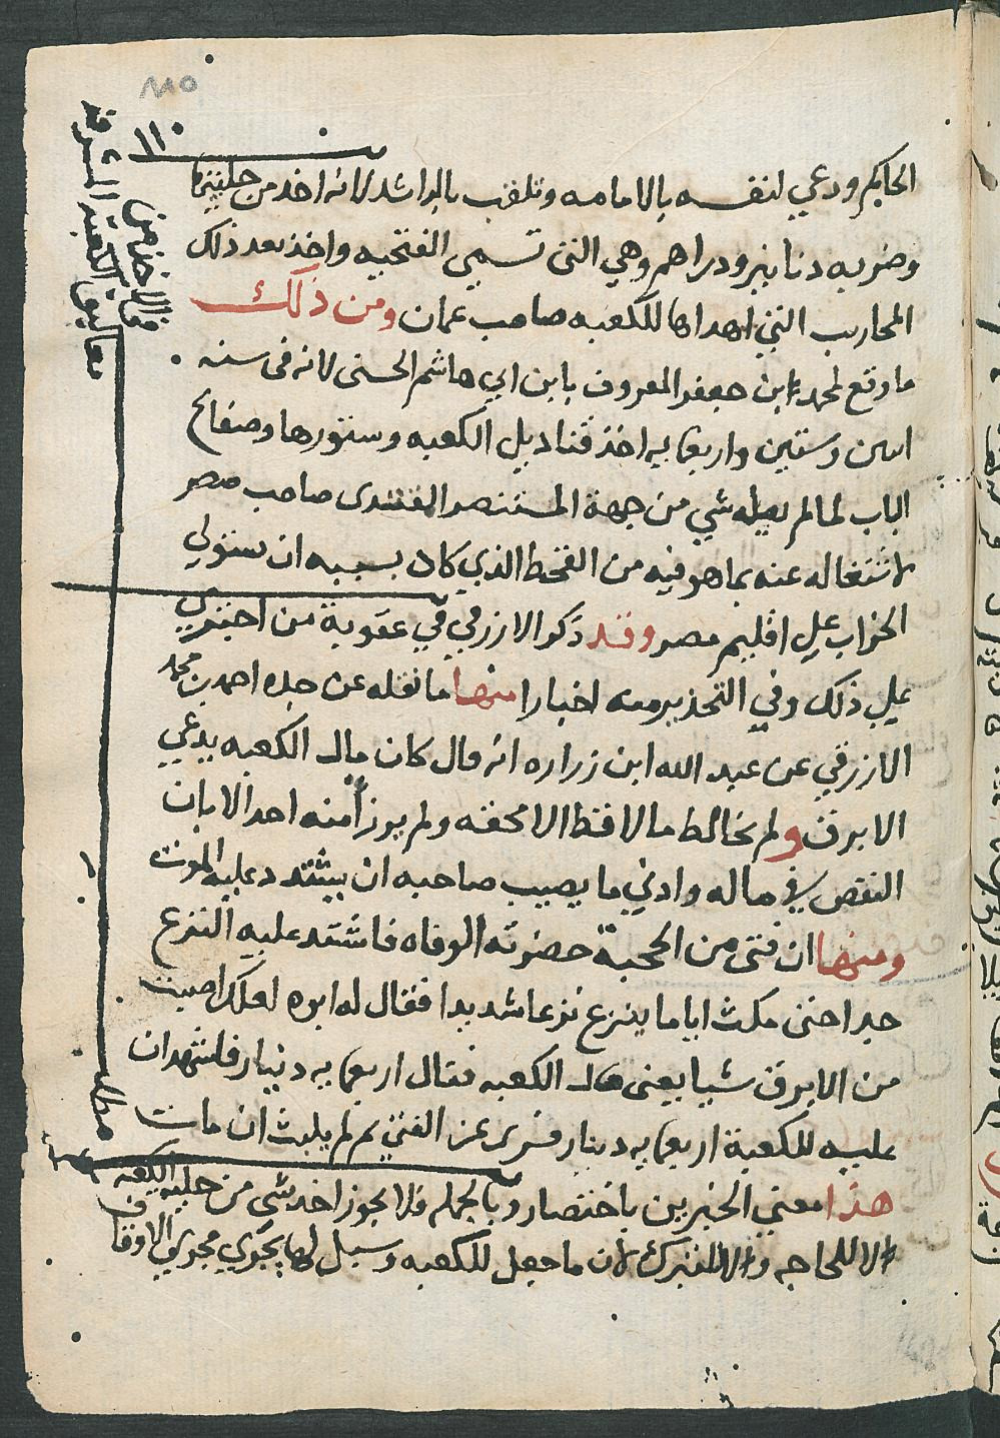 الحاكم ودعي لنفسه بالامامه وتلقب بالراشد لانه اخد من حليتها
وضربه دنانير ودراهم وهي التى تسمي الفتحيه واخذ بعد ذلك
المحاريب التي اهداها للكعبه صاحب عمان ومن ذلك
ما وقع لمحمد ابن جعفر المعروف بابن ابي هاشم الحسنى لانه فى سنه
اسن وستين واربعمايه اخذ قناديل الكعبه وستورها وصفايح
الباب لما لم يصله شي من جهة المستنصر العبيدى صاحب مصر
لاشتغاله عنه بما هو فيه من القحط الذي كاد بسببه ان يستولي
الخراب علي اقليم مصر وقد ذكر الازرقي في عقوبة من اجترى
علي ذلك وفي التحذير منه اخبارا منها ما نقله عن جده احمد بن محمد
الازرقي عن عبد الله ابن زراره انه قال كان مال الكعبه يدعي
الابرق ولم يخالط مالا قط الا محقه ولم يرزأ منه احد الا بان
النقص في ماله وادني ما يصيب صاحبه ان يشتد د عليه الموت
ومنها ان فتى من الحجبة حضرته الوفاه فاشتد عليه النزع
جدا حتى مكث اياما ينزع نزعا شديدا فقال له ابوه لعلك اصبت
من الابرق شيا يعنى مال الكعبه فقال اربعمايه دينار فاشهد ان
عليه للكعبة اربعمايه دينار فسرى عن الفتي ثم لم يلبث ان مات
هذا معني الخبرين باختصار وبالجمله فلا يجوز اخد شى من حلية الكعبه
الا للحاجه والا للتبرك لان ما جعل للكعبه وسبل لها يجري مجري الاوقاف
من الاخذ من
تعاليق الكعبة الشرفه
مطلب
١١٠
١١٥